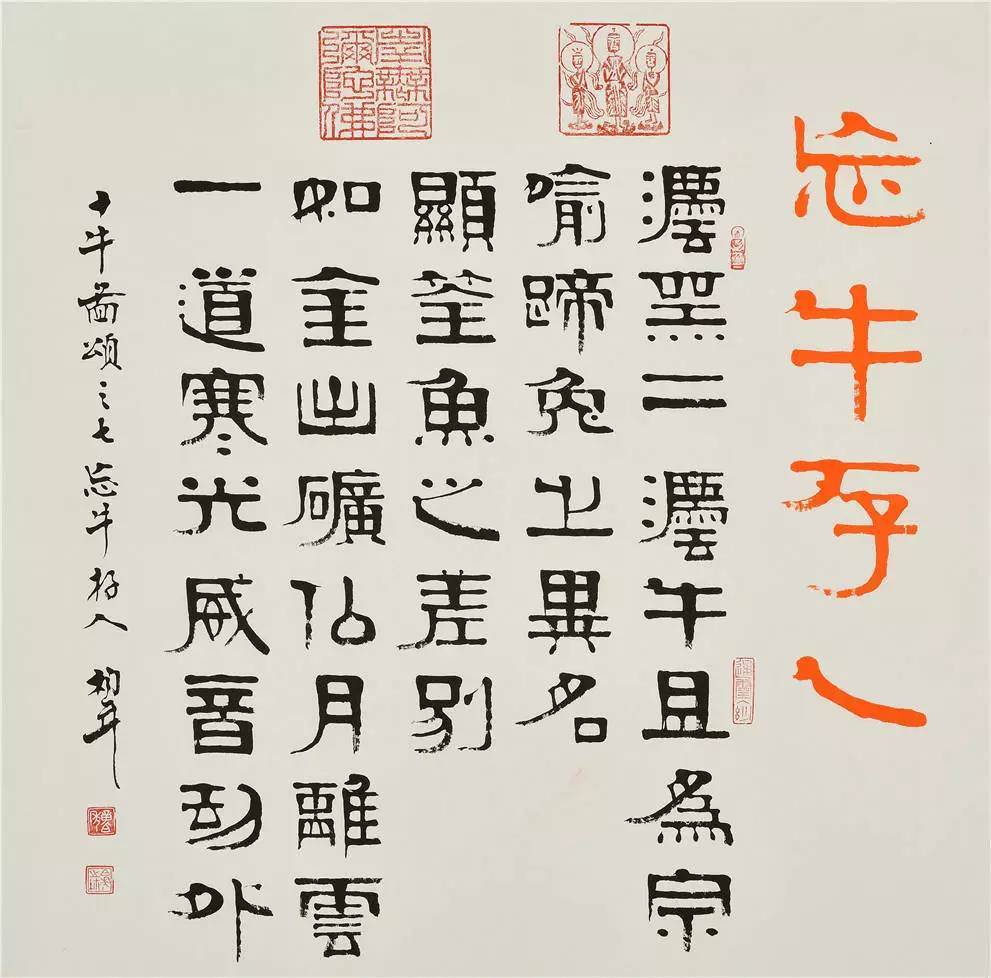 忘牛存人
灋無二灋牛且為宗
喻蹄兔之異名
顯筌魚之差別
如金出礦似月離雲
一道寒光威音劫外
十牛圖頌之七忘牛存人
南無阿彌陀佛